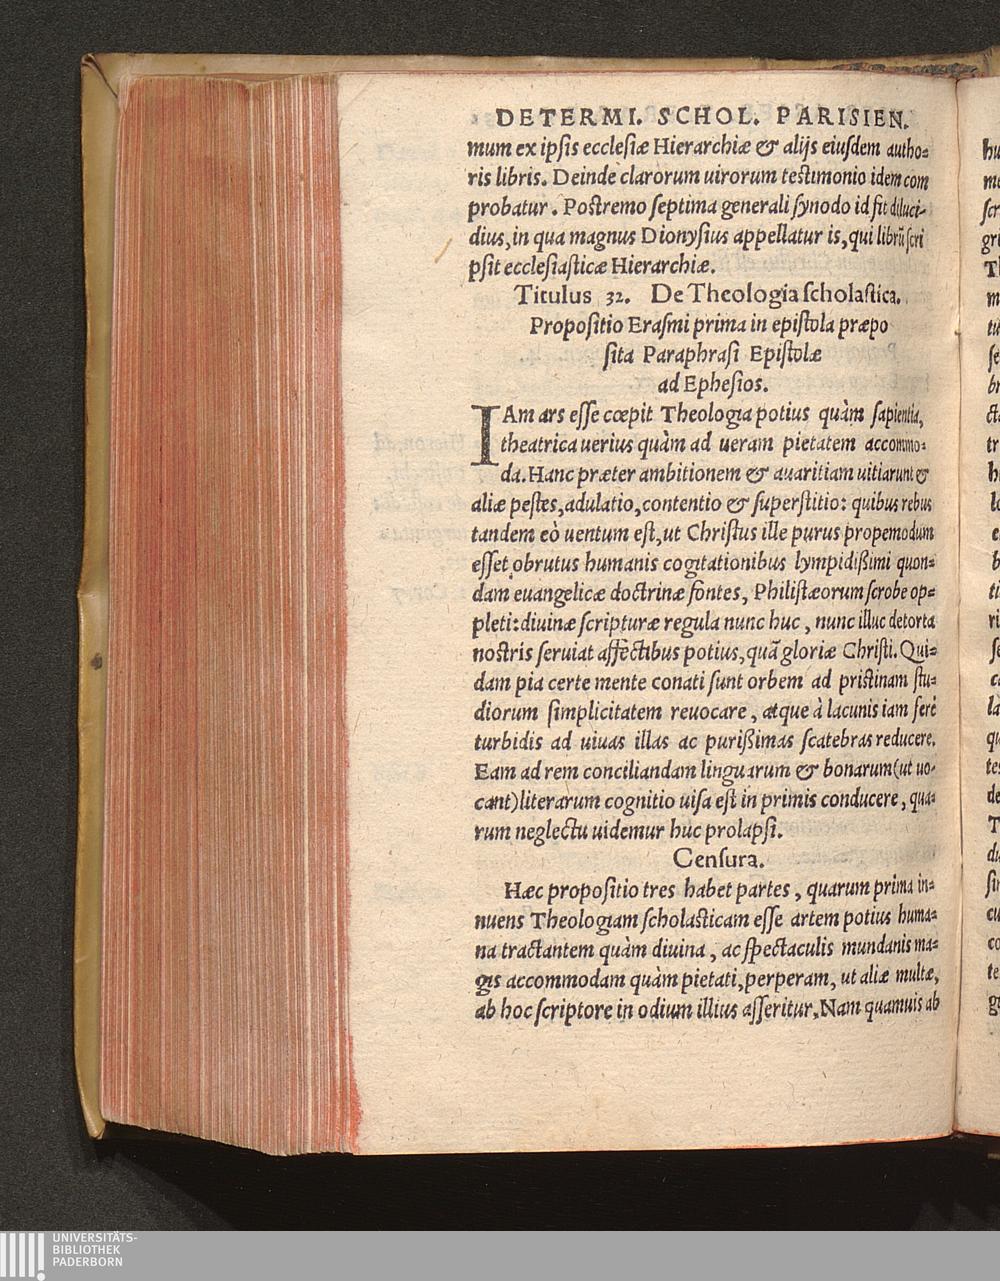 DETERMI. SCHOL. PARISIEN.
mum ex ipſis eccleſiæ Hierarchiæ & alijs eiuſdem autho=
ris libris. Deinde clarorum uirorum teſtimonio idem com
probatur. Poſtremo ſeptima generali ſynodo id fit diluci-
dius, in qua magnus Dionyſius appellatur is, qui librũ ſcri
pſit eccleſiaſticæ Hierarchiæ.
Titulus 32. De Theologia ſcholaſtica.
Propoſitio Eraſmi prima in epiſtola præpo
ſita Paraphraſi Epiſtolæ
ad Epheſios.
IAm ars eſſe cœpit Theologia potius quàm ſapientia,
theatrica uerius quàm ad ueram pietatem accommo=
da. Hanc præter ambitionem & auaritiam uitiarunt &
aliæ peſtes, adulatio, contentio & ſuperſtitio: quibus rebus
tandem eò uentum eſt, ut Chriſtus ille purus propemodum
eſſet obrutus humanis cogitationibus lympidißimi quon=
dam euangelicæ doctrinæ fontes, Philiſtæorum ſcrobe op=
pleti: diuinæ ſcripturæ regula nunc huc, nunc illuc detorta
noſtris ſeruiat affectibus potius, quã gloriæ Chriſti. Qui=
dam pia certe mente conati ſunt orbem ad priſtinam ſtu=
diorum ſimplicitatem reuocare, atque à lacunis iam ferè
turbidis ad uiuas illas ac purißimas ſcatebras reducere.
Eam ad rem conciliandam linguarum & bonarum (ut uo-
cant) literarum cognitio uiſa eſt in primis conducere, qua=
rum neglectu uidemur huc prolapſi.
Cenſura.
Hæc propoſitio tres habet partes, quarum prima in=
nuens Theologiam ſcholaſticam eſſe artem potius huma=
na tractantem quàm diuina, ac ſpectaculis mundanis ma=
gis accommodam quàm pietati, perperam, ut aliæ multæ,
ab hoc ſcriptore in odium illius aſſeritur, Nam quamuis ab
UNIVERSITÄTS-
BIBLIOTHEK
PADERBORN